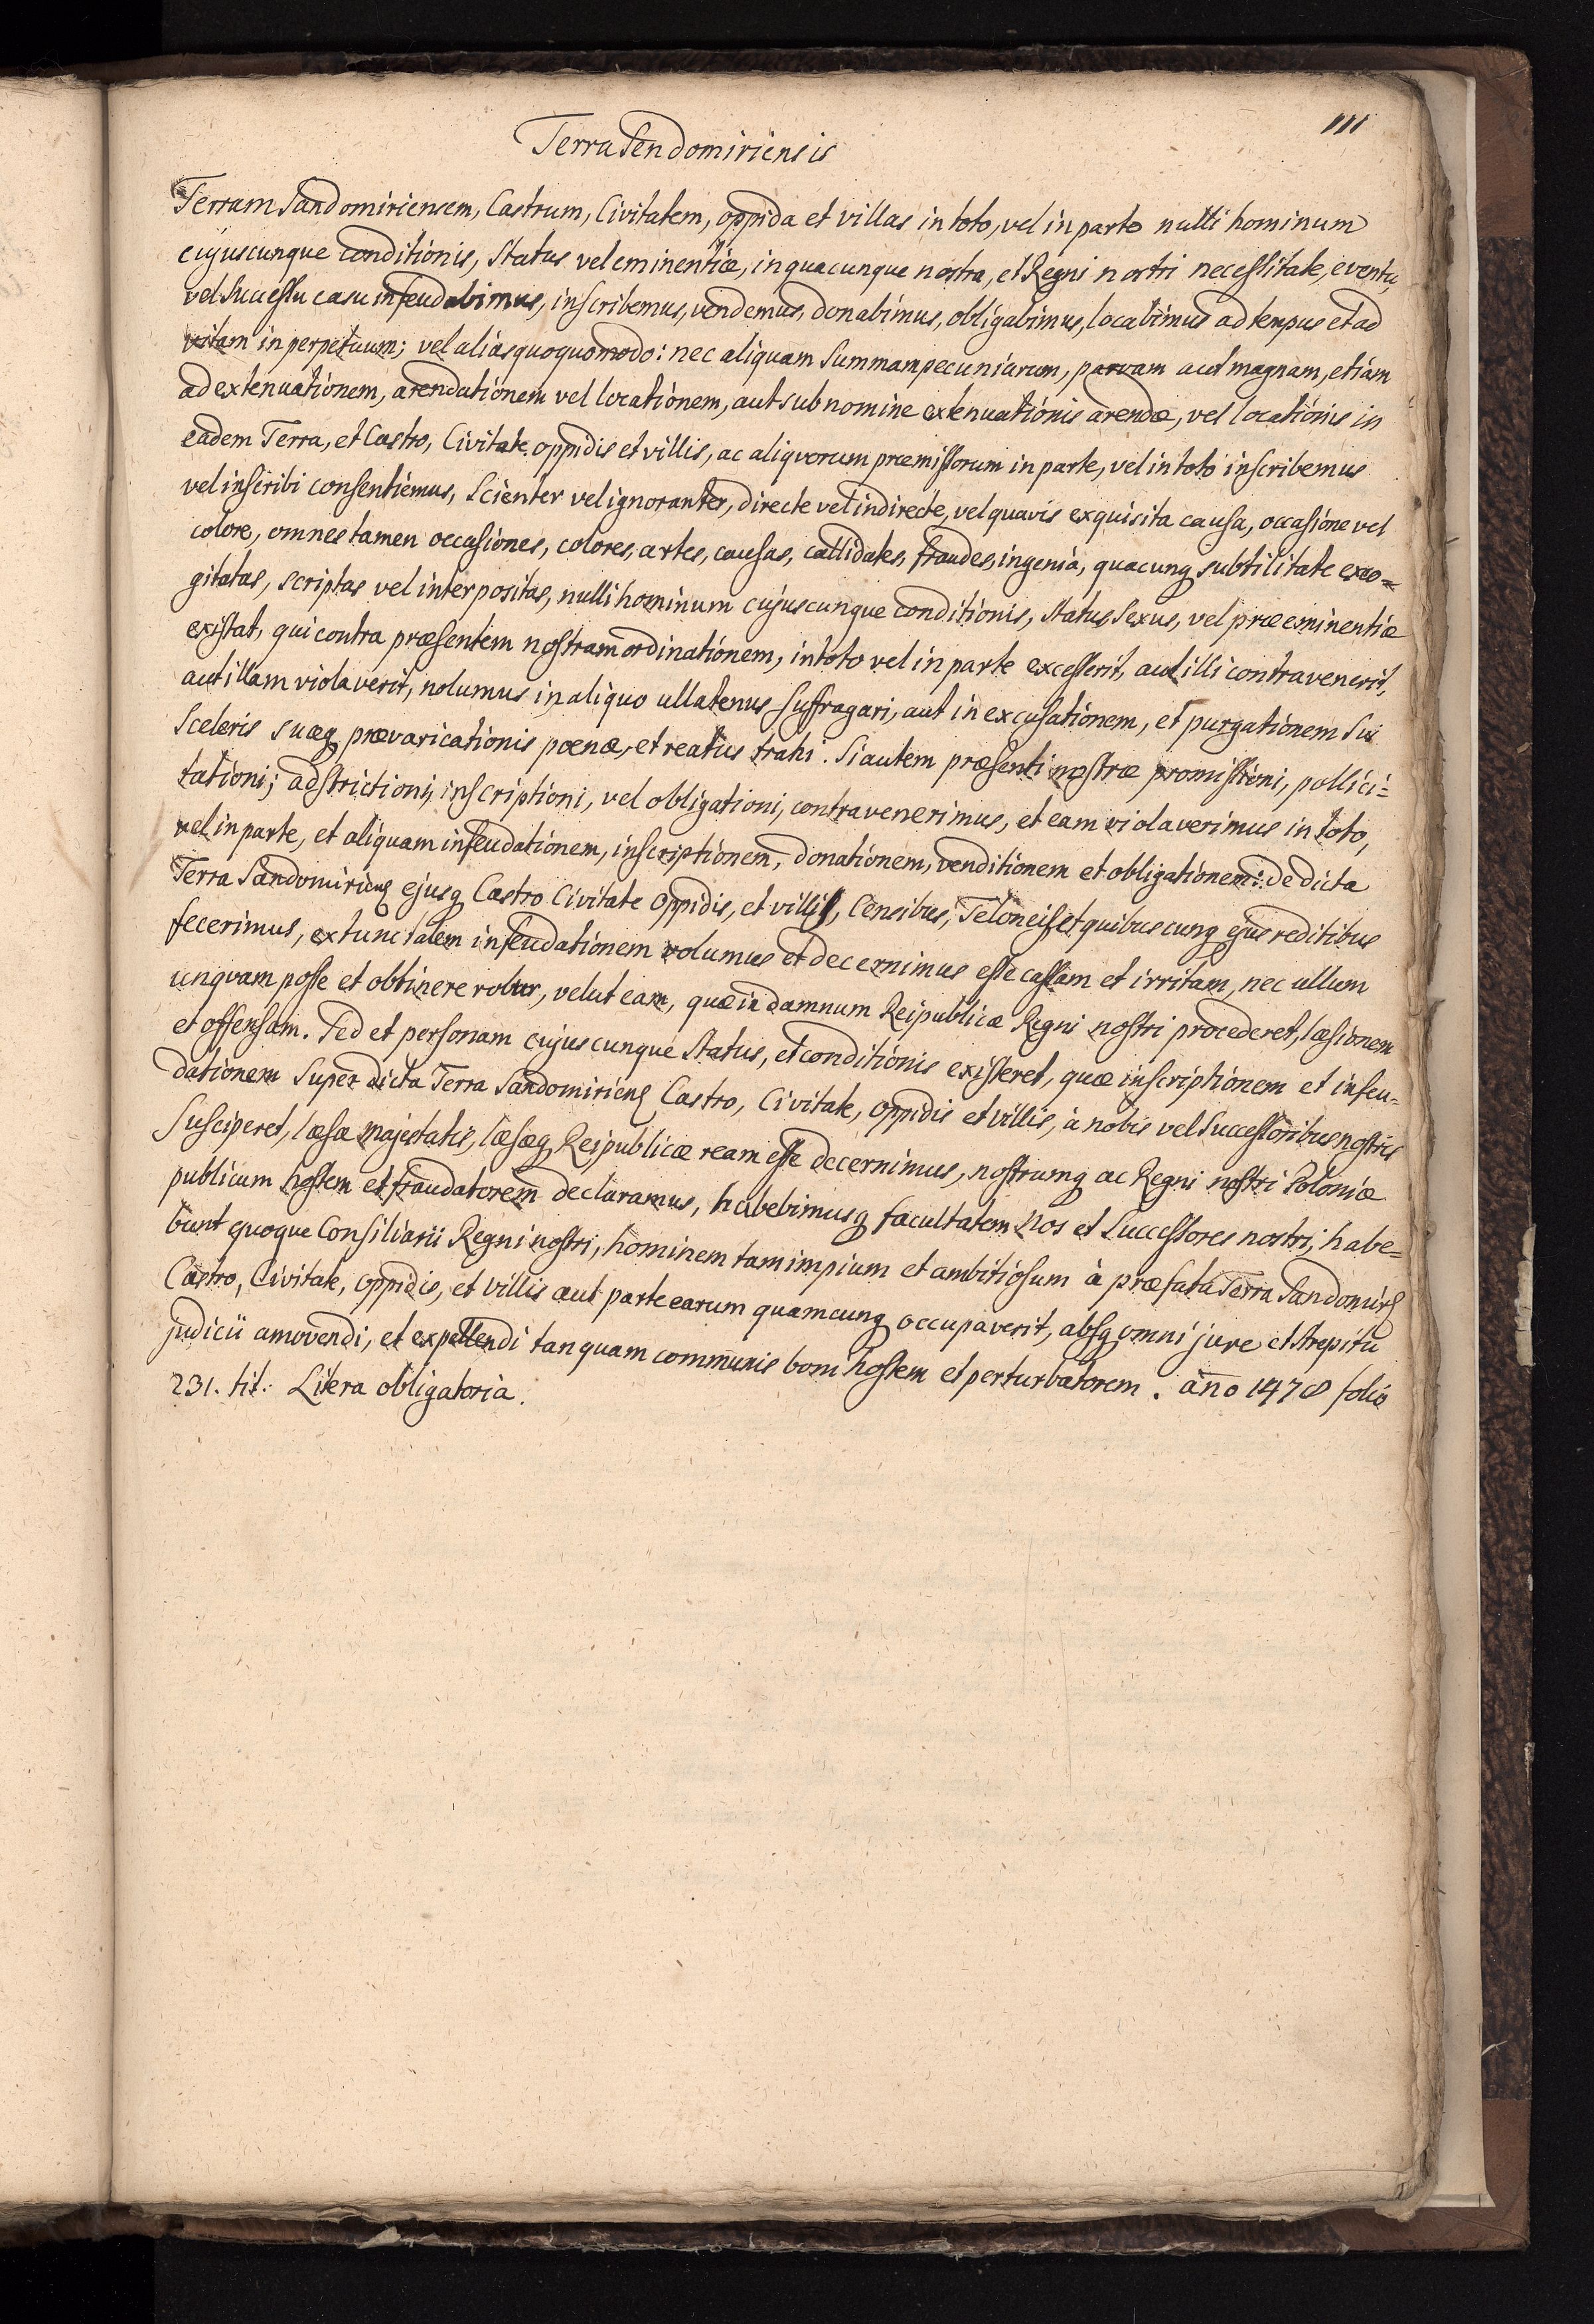 111
Terra Sendomiriensis
Terram Sandomiriensem, Castrum, Civitatem, oppida et villas in toto, vel in parte nulli hominum
cujuscunque conditionis, status vel eminentiæ, in quacunque nostra, et Regni nostri necessitate, eventu,
vel successu casu infeudabimus, inscribemus, vendemus, donabimus, obligabimus, locabimus ad tempus et ad
vitam in perpetuum; vel alias quoquomodo: nec aliquam summam pecuniarum, parvam aut magnam, etiam
ad extenuationem, arendationem vel locationem, aut sub nomine extenuationis arendæ, vel locationis in
eadem Terra, et Castro, Civitate oppidis et villis, ac aliqvorum præmissorum in parte, vel in toto inscribemus
vel inscribi consentiemus, scienter vel ignoranter, directe vel indirecte, vel quavis exquisita causa, occasione vel
colore, omnes tamen occasiones, colores, artes, causas, calliditates, fraudes, ingenia, quacunq subtilitate exco=
gitatas, scriptas vel interpositas, nulli hominum cujuscunque conditionis, status sexus, vel præeminentiæ
existat, qui contra præsentem nostram ordinationem, in toto vel in parte excesserit, aut illi contravenerit,
aut illam violaverit, nolumus in aliquo ullatenus suffragari, aut in excusationem, et purgationem sui
sceleris suæq prævaricationis poenæ, et reatus trahi. Si autem præsenti nostræ promissioni, pollici=
tationi; adstrictioni, inscriptioni, vel obligationi, contravenerimus, et eam violaverimus in toto,
vel in parte, et aliquam infeudationem, inscriptionem, donationem, venditionem et obligationem: de dicta
Terra Sandomiriens ejusq Castro Civitate oppidis, et villis, Censibus, Teloneis, et quibuscunq ejus reditibus
fecerimus, ex tunc talem infeudationem volumus et decernimus esse cassam et irritam, nec ullum
unqvam posse et obtinere robur, velut eam, quæ in damnum Reipublicæ Regni nostri procederet, læsionem
et offensam. Sed et personam cujuscunque status, et conditionis existeret, quæ inscriptionem et infeu=
dationem super dicta Terra Sandomiriens Castro, Civitate, oppidis et villis, à nobis vel successoribus nostris
susciperet, læsæ majestatis, læsæq Reipublicæ ream esse decernimus, nostrumq ac Regni nostri Poloniæ
publicum hostem et fraudatorem declaramus, habebimusq facultatem Nos et Successores nostri, habe=
bunt quoque Consiliarii Regni nostri, hominem tam impium et ambitiosum à præfata Terra Sandomirs
Castro, Civitate, oppidis, et villis aut parte earum quamcunq occupaverit, absq omni jure et strepitu
judicii amovendi, et expellendi tanquam communis boni hostem et perturbatorem. año 1478 folio
231. tit: Litera obligatoria.